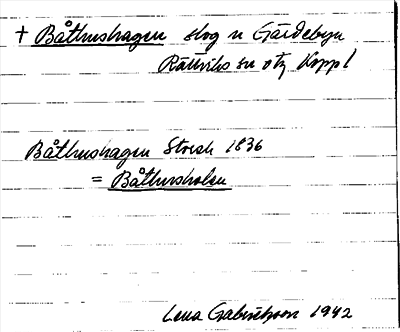 + Båthushagen skog n Gärdebyn
Rättviks sn otz Koppl
Båthushagen Storsk 1836
= Båthusholen
Lena Gabrielsson 1942